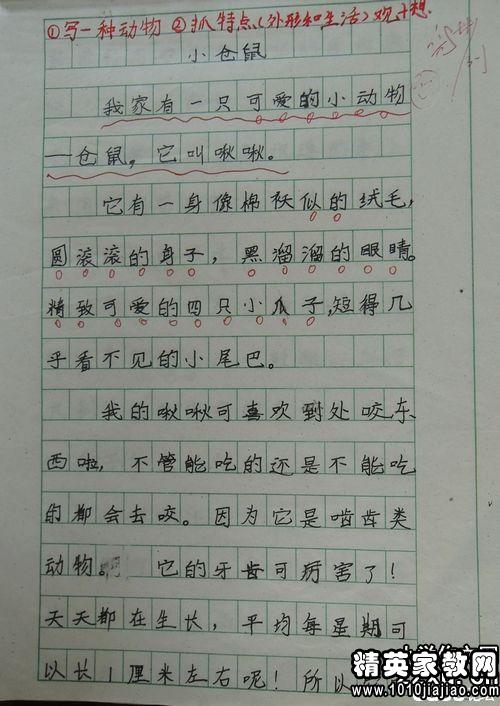 ①写一种动物 ②抓特点(外形和生活)观+想
小仓鼠
我家有一只可爱的小动物
——仓鼠,它叫啾啾。
它有一身像棉袄似的绒毛,
圆滚滚的身子,黑溜溜的眼睛。
精致可爱的四只小爪子,短得几
乎看不见的小尾巴。
我的啾啾可喜欢到处咬东
西啦,不管能吃的还是不能吃
的都会去咬。因为它是啮齿类
动物。它的牙齿可厉害了!
天天都在生长,平均每星期可
以长1厘米左右呢!所以
精英家教网
www.1010jiajiao.com